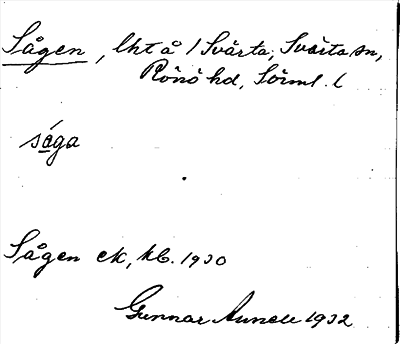 Sågen, lht å 1 Svärta, Svärta sn,
Rönö hd, Sörml. l
såga
Sågen ek, kb. 1930
Gunnar 1932